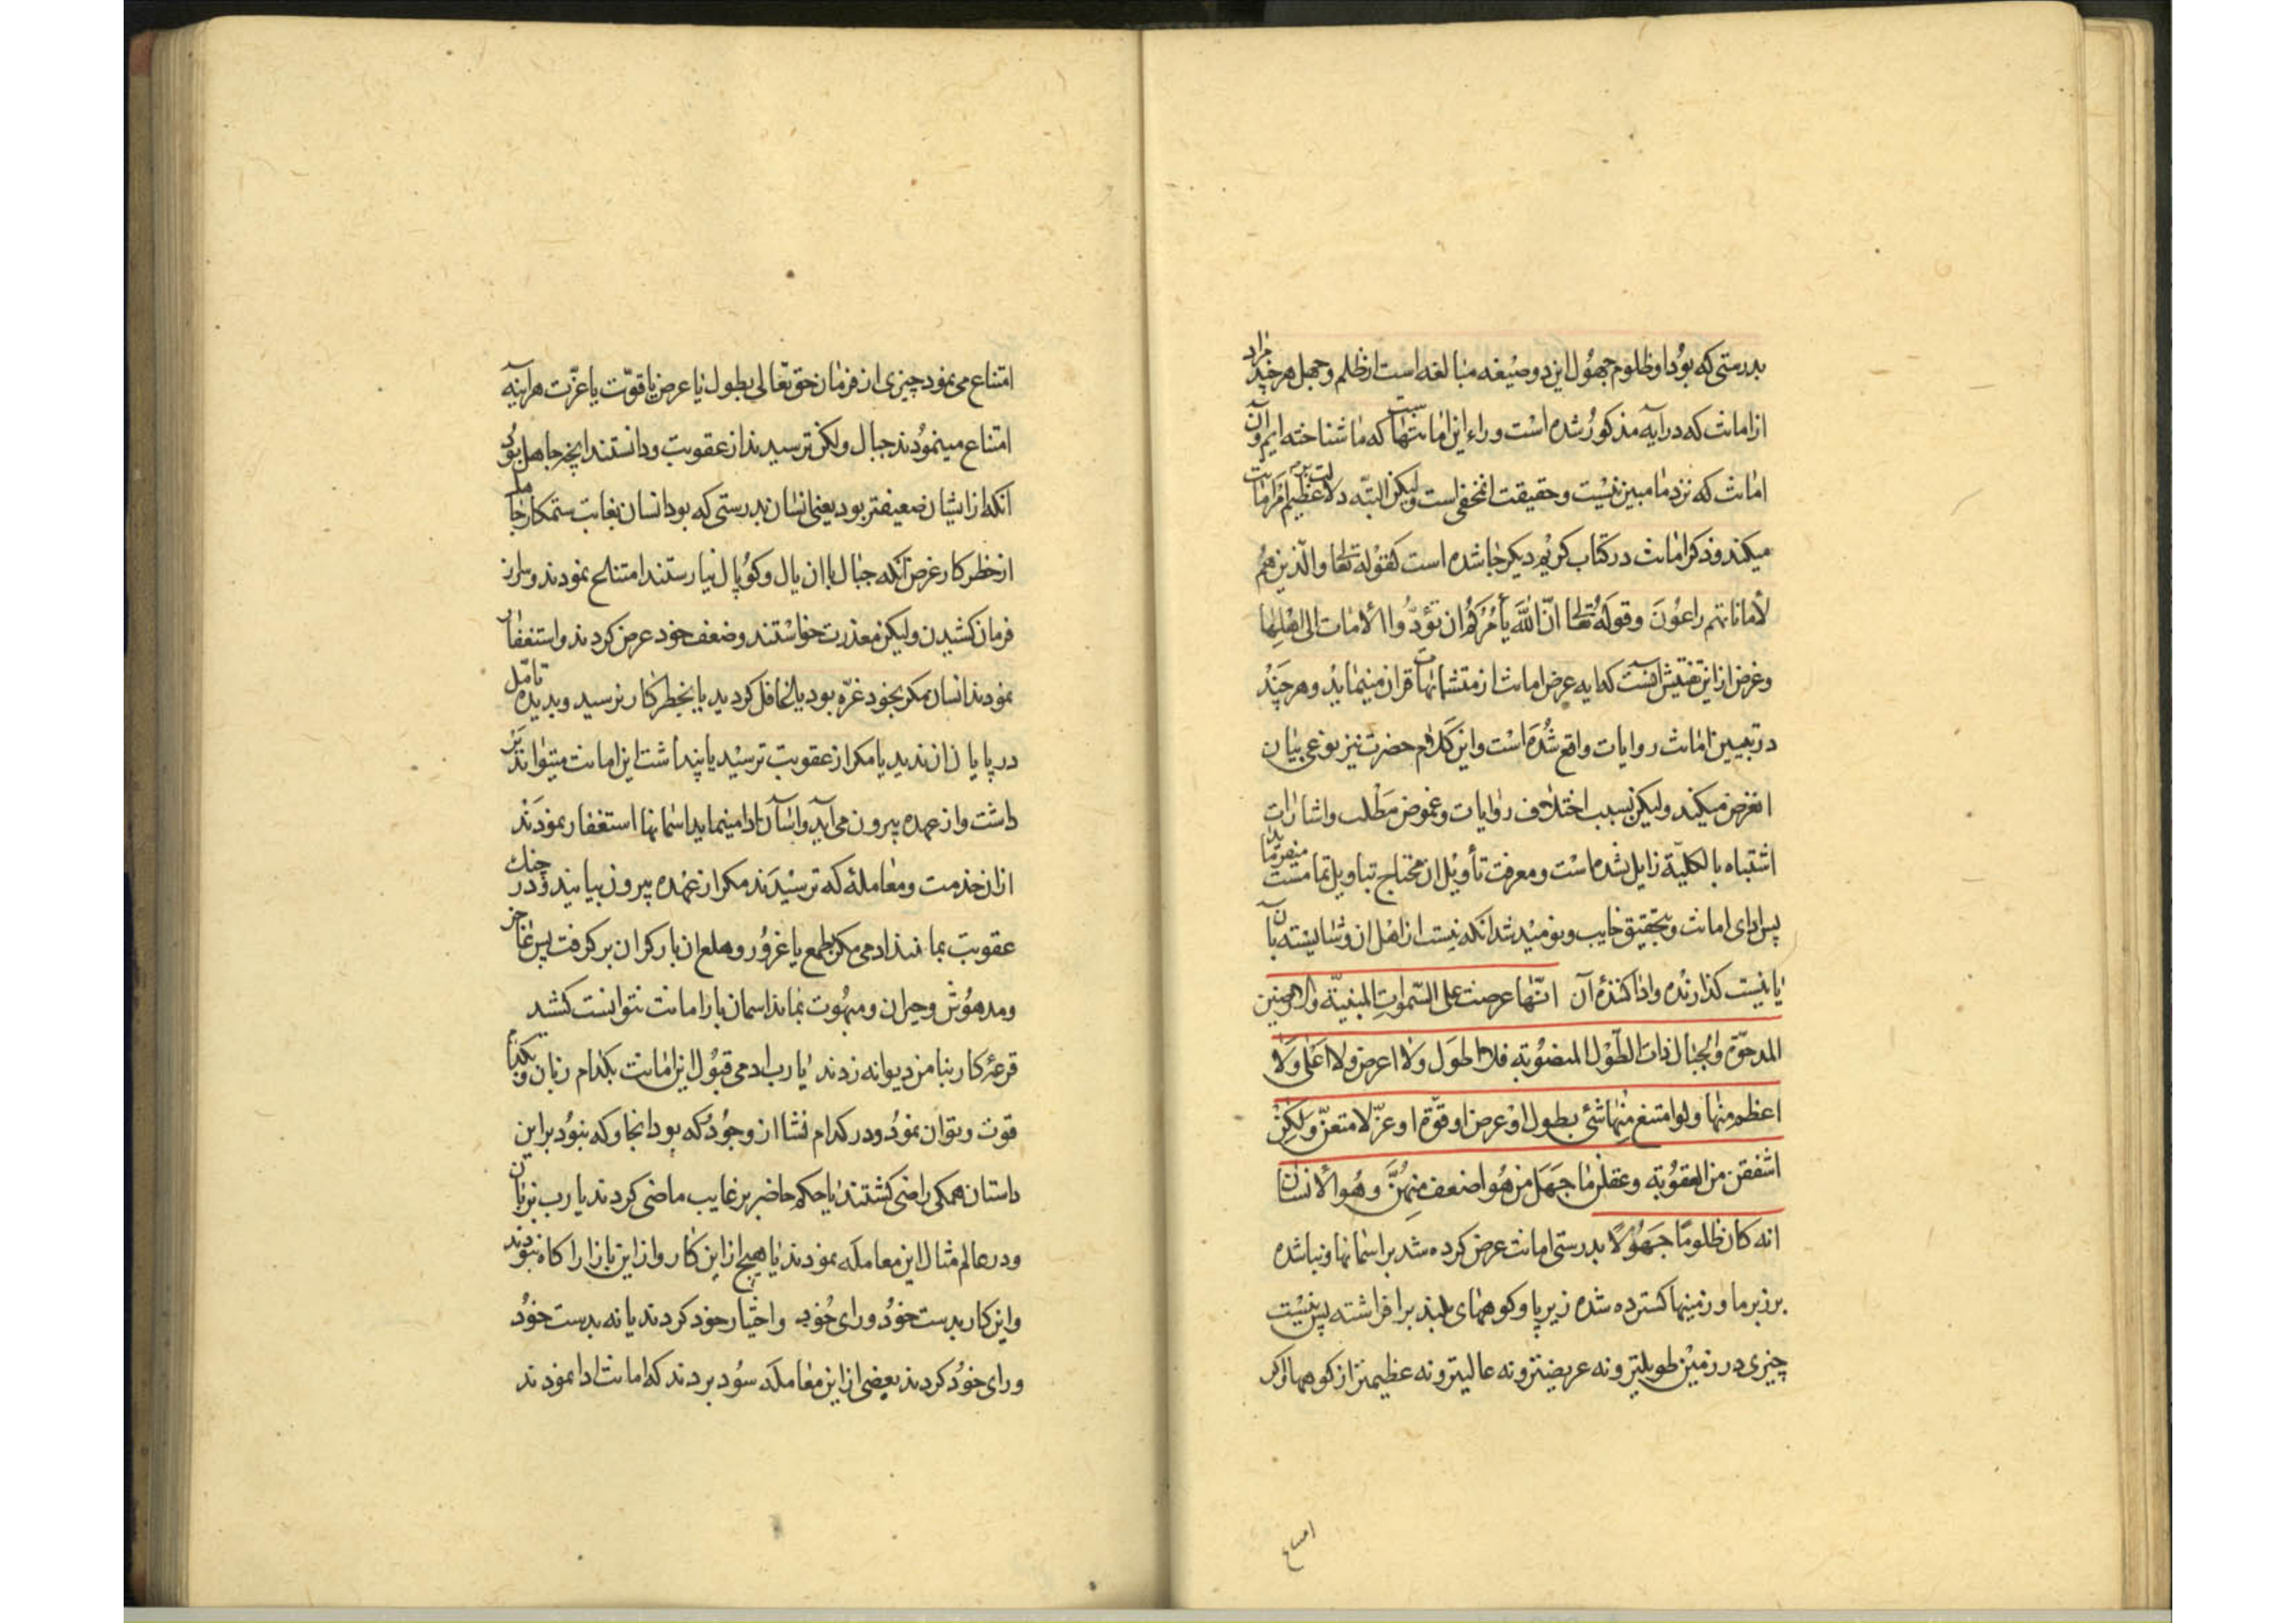 بدرستی که بود او ظلوم جهول این دو صیغه مبالغه است از ظلم و جهل هر چند مراد
از امانت که در آیه مذکور شده است وراء این امانتهاست که ما شناخته ایم و آن
امانت که نزد ما مبین نیست و حقیقت ان مخفی است ولیکن البته دلالت بر عظیم امر امانت
میکند و ذکر امانت در کتاب کریم دیگر جا شده است کقوله تعا والذین هم
لأماناتهم راعون وقوله تعا انّ الله یأمرکم ان تؤدّوا الأمانات الی اهلها
و غرض از این تفتیش آنست که ایه عرض امانت از متشابهات قران مینماید و هر چند
در تبیین امانت روایات واقع شده است و این کلام حضرت نیز نوعی بیان
ان غرض میکند ولیکن بسبب اختلاف روایات و غموض مطلب و اشارات
اشتباه بالکلیّة زایل نشده است و معرفت تأویل ان محتاج بتاویل تمامست
پس ادای امانت و بتحقیق خایب و نومید شد انکه نیست از اهل ان و شایسته آن
یا نیست گذارنده و ادا کننده آن انّها عرضت علی السّموات المبنیّة والارضین
المدحوّة والجبال ذات الطّول المنصوبة فلا اطول ولا اعرض ولا اعلی ولا
اعظم منها ولو امتنع منها شئ بطول او عرض او قوّة او عزّ لامتعنّ ولکن
اشفقن من العقوبة وعقلن ما جهل من هو اضعف منهنّ وهو الأنسان
انه کان ظلومًا جهولًا بدرستی امانت عرض کرده شد بر اسمانها و بنا شده
برزبر ما و زمینها کسترده شده زیر پا و کوههای بلند برافراشته پس نیست
چیزی در زمین طویلتر و نه عریضتر و نه عالیتر و نه عظیمتر از کوهها و اگر
امتناع
امتناع می نمود چیزی از فرمان حق تعالی بطول یا عرض یا قوّت یا عزّت هر آینه
امتناع مینمودند جبال ولکن ترسیدند از عقوبت و دانستند انچه جاهل بود
انکه از ایشان ضعیفتر بود یعنی انسان بدرستی که بود انسان بغایت ستمکار جاهل
از خطر کار غرض آنکه جبال با ان یال و کوپال نیارستند امتناع نمودند و سر از
فرمان کشیدن ولیکن معذرت خواستند و ضعف خود عرض کردند و استغفار
نمودند انسان مکر بخود غرّه بود یا تغافل کرد ید یا بخطر کار نرسید و بدیده تامّل
در پایان ان ندید یا مکر از عقوبت ترسید یا پنداشت این امانت میتواند
داشت و از عهده بیرون می آید و انرا ادا مینماید اسمانها استغفار نمودند
از ان خدمت و معامله که ترسیدند مکر از عهده بیرون نیایند و در چنک
عقوبت بمانند ادمی مکر بطمع یا غرور و هلع ان بار کران بر کرفت پس عاجز
و مدهوش و حیران و مبهوت بماند اسمان بار امانت نتوانست کشید
قرعۀ کار بنام من دیوانه زدند یا رب ادمی قبول این امانت بکدام زبان و بکدام
قوت و توان نمود و در کدام نشا از وجود که بود انجا و که نبود بر این
داستان همکی راضی کشتند یا حکم حاضر بر غایب ماضی کردند یا رب بزبان
و در عالم مثال این معامله نمودند یا هیچ از این کار و از این بازار اکاه نبودند
و این کار بدست خود و رای خود و اختیار خود کردند یا نه بدست خود
و رای خود کردند بعضی از این معامله سود بردند که امانت ادا نمودند